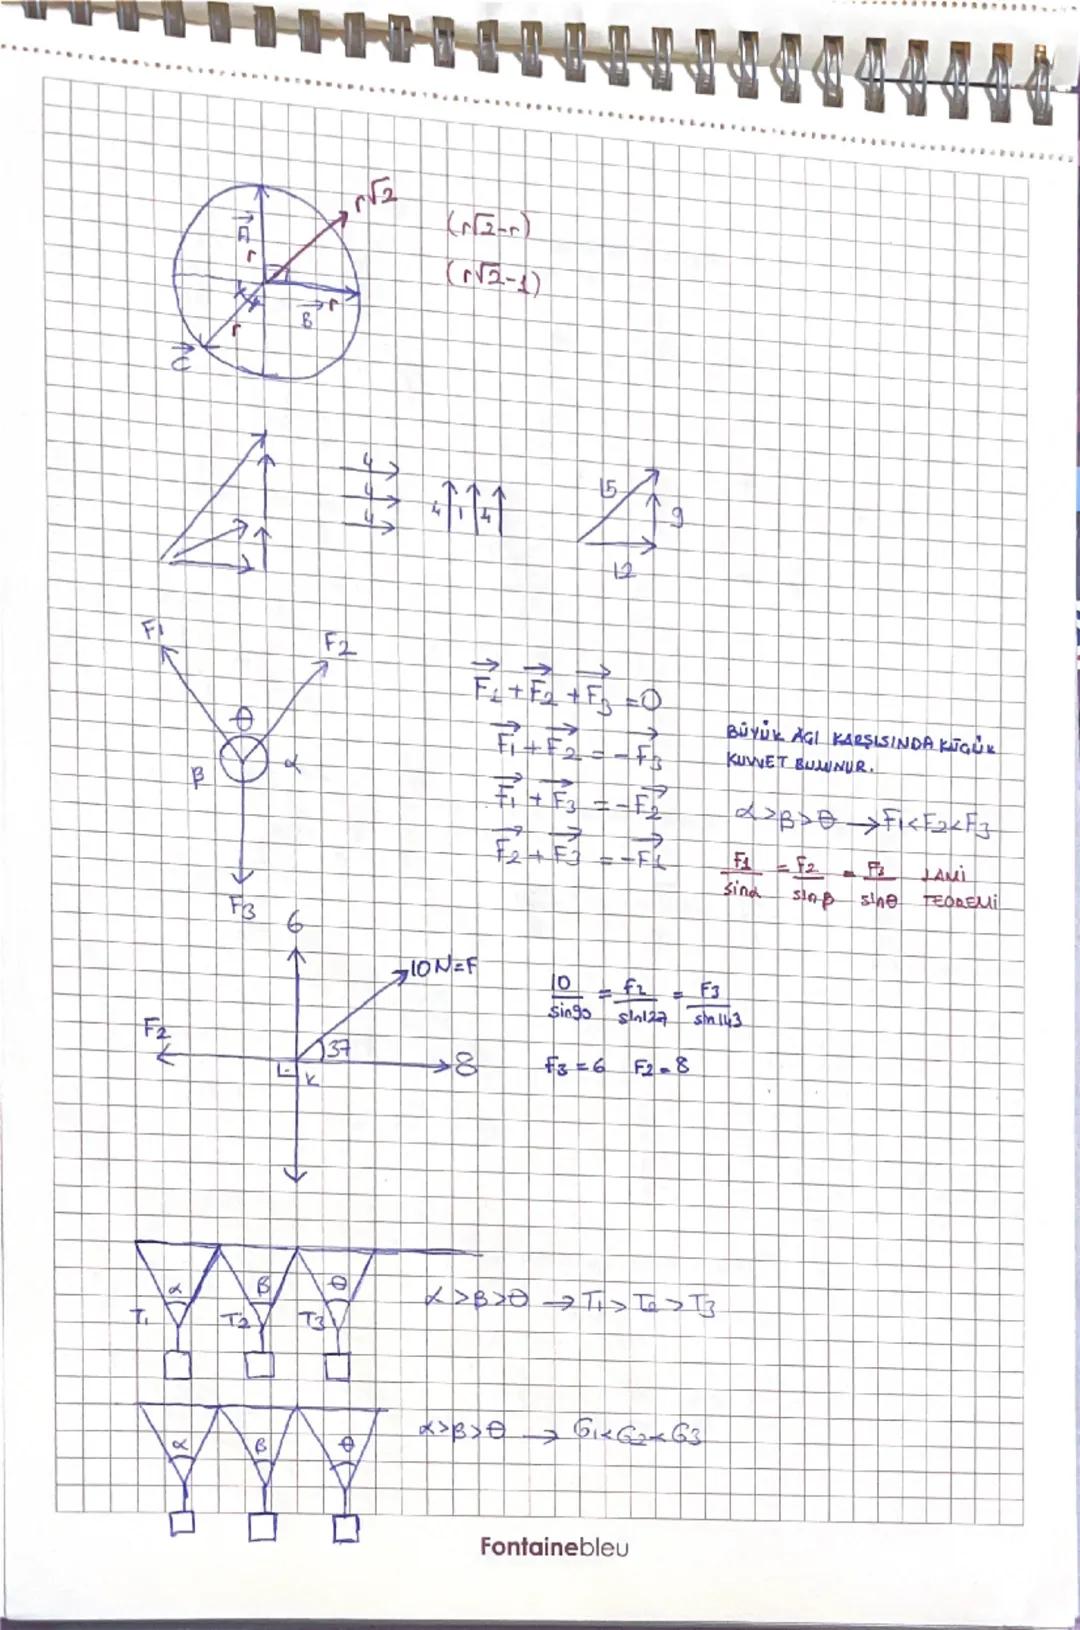 r√2
(r√2-r)
A
r
(r√2-1)
r
B
r
C
4
4
4
4 1 4
15
9
12
F1
F2
θ
β
α
F3
F1+F2+F3=0
F1+F2=-F3
F1+F3=-F2
F2+F3=-F1
BÜYÜK AÇI KARŞISINDA KÜÇÜK
KUVVET BULUNUR.
α>β>θ →F1<F2<F3
F1/sinα = F2/sinβ = F3/sinθ LAMİ TEOREMİ
6
10N=F
F2
37
8
K
10/sin90 = F2/sin127 = F3/sin143
F3=6 F2=8
α β θ
T1 T2 T3
α>β>θ → T1>T2>T3
α β θ
α>β>θ → G1<G2<G3
Fontainebleu